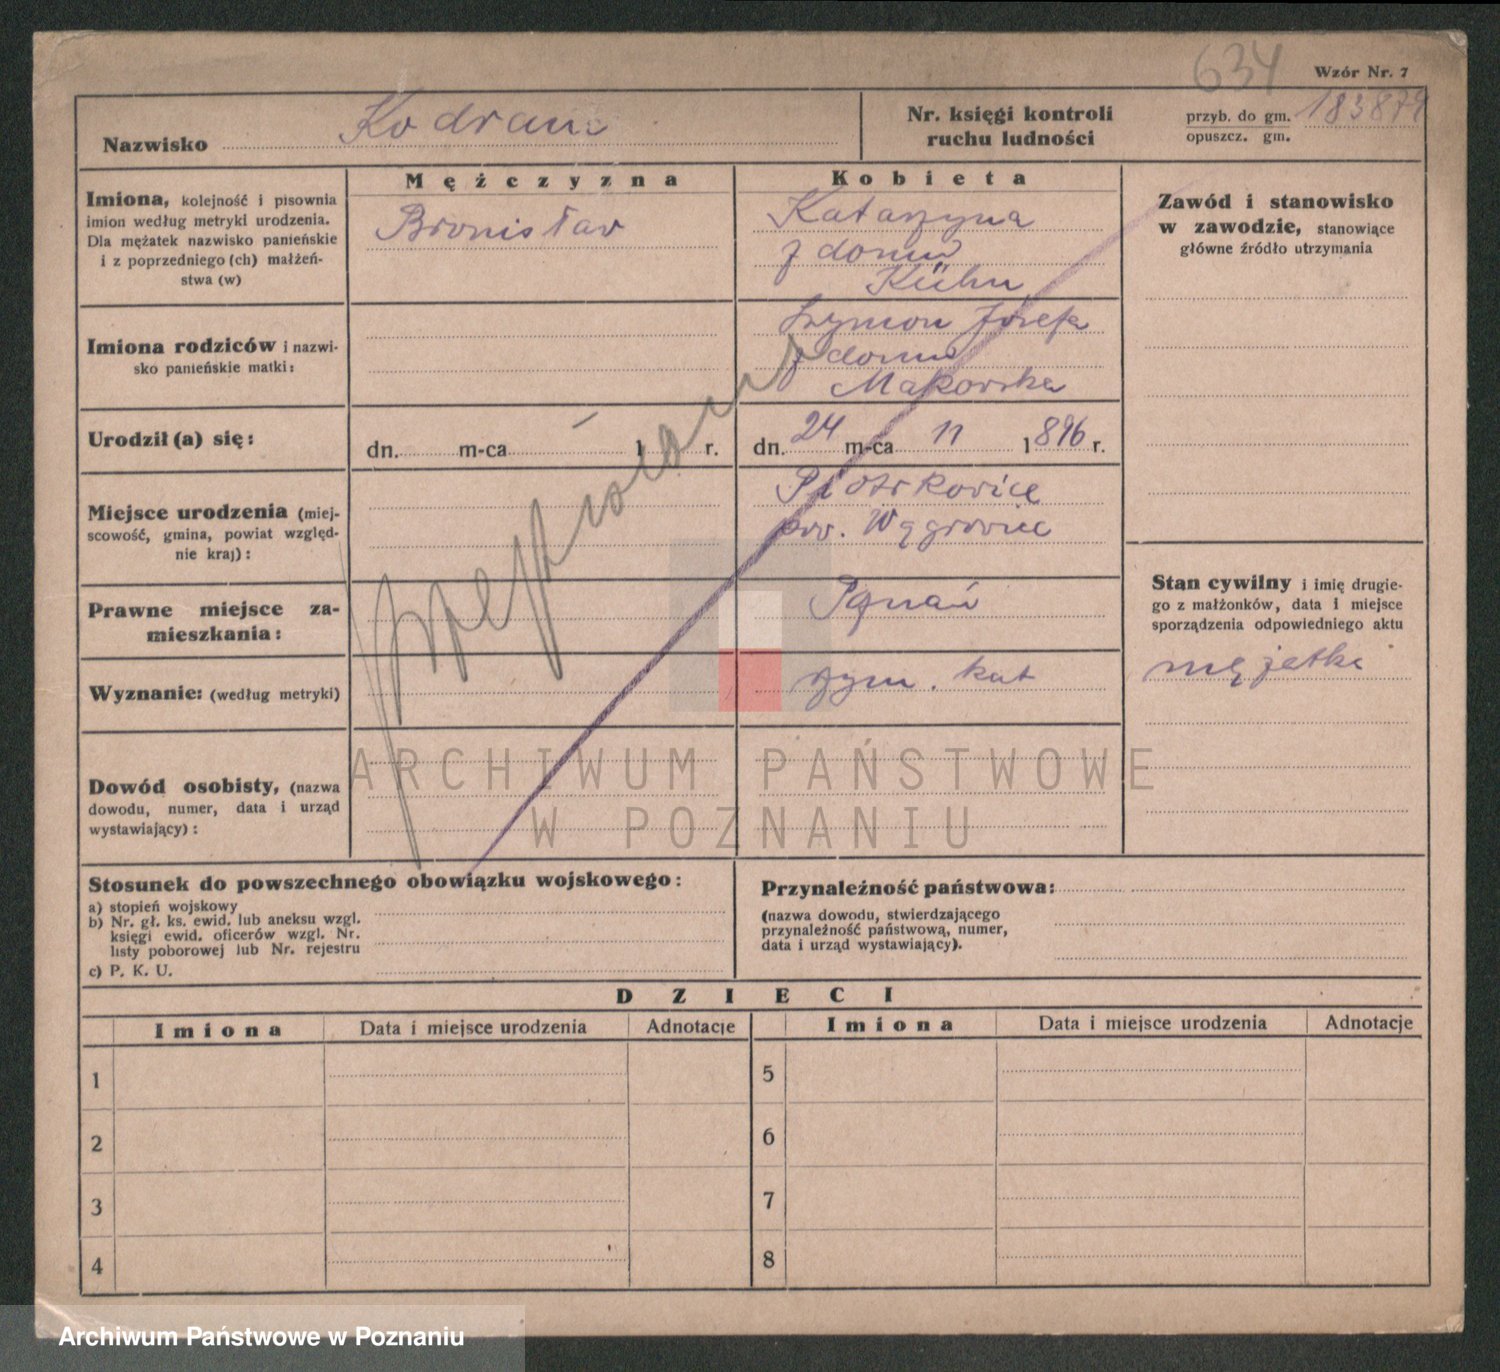 634
Wzór Nr. 7
Nazwisko Kodrans
Nr. księgi kontroli
ruchu ludności
przyb. do gm. 183879
opuszcz. gm.
Imiona, kolejność i pisownia
imion według metryki urodzenia.
Dla mężatek nazwisko panieńskie
i z poprzedniego (ch) małżeń-
stwa (w)
Mężczyzna
Bronisław
Kobieta
Katarzyna
z domu
Kühn
Zawód i stanowisko
w zawodzie, stanowiące
główne źródło utrzymania
Imiona rodziców i nazwi-
sko panieńskie matki:
Szymon Józefa
z domu
Makowska
Urodził (a) się:
dn. m-ca 1 r.
dn. 24 m-ca 11 1896 r.
Miejsce urodzenia (miej-
scowość, gmina, powiat względ-
nie kraj):
Piotrkowice
pow. Wągrowiec
Prawne miejsce za-
mieszkania:
Poznań
Stan cywilny i imię drugie-
go z małżonków, data i miejsce
sporządzenia odpowiedniego aktu
mężatka
Wyznanie: (według metryki)
rzym. kat
Dowód osobisty, (nazwa
dowodu, numer, data i urząd
wystawiający):
ARCHIWUM PAŃSTWOWE
W POZNANIU
Stosunek do powszechnego obowiązku wojskowego:
a) stopień wojskowy
b) Nr. gł. ks. ewid. lub aneksu wzgl.
księgi ewid. oficerów wzgl. Nr.
listy poborowej lub Nr. rejestru
c) P. K. U.
Przynależność państwowa:
(nazwa dowodu, stwierdzającego
przynależność państwową, numer,
data i urząd wystawiający).
DZIECI
Imiona Data i miejsce urodzenia Adnotacje Imiona Data i miejsce urodzenia Adnotacje
1 5
2 6
3 7
4 8
Archiwum Państwowe w Poznaniu